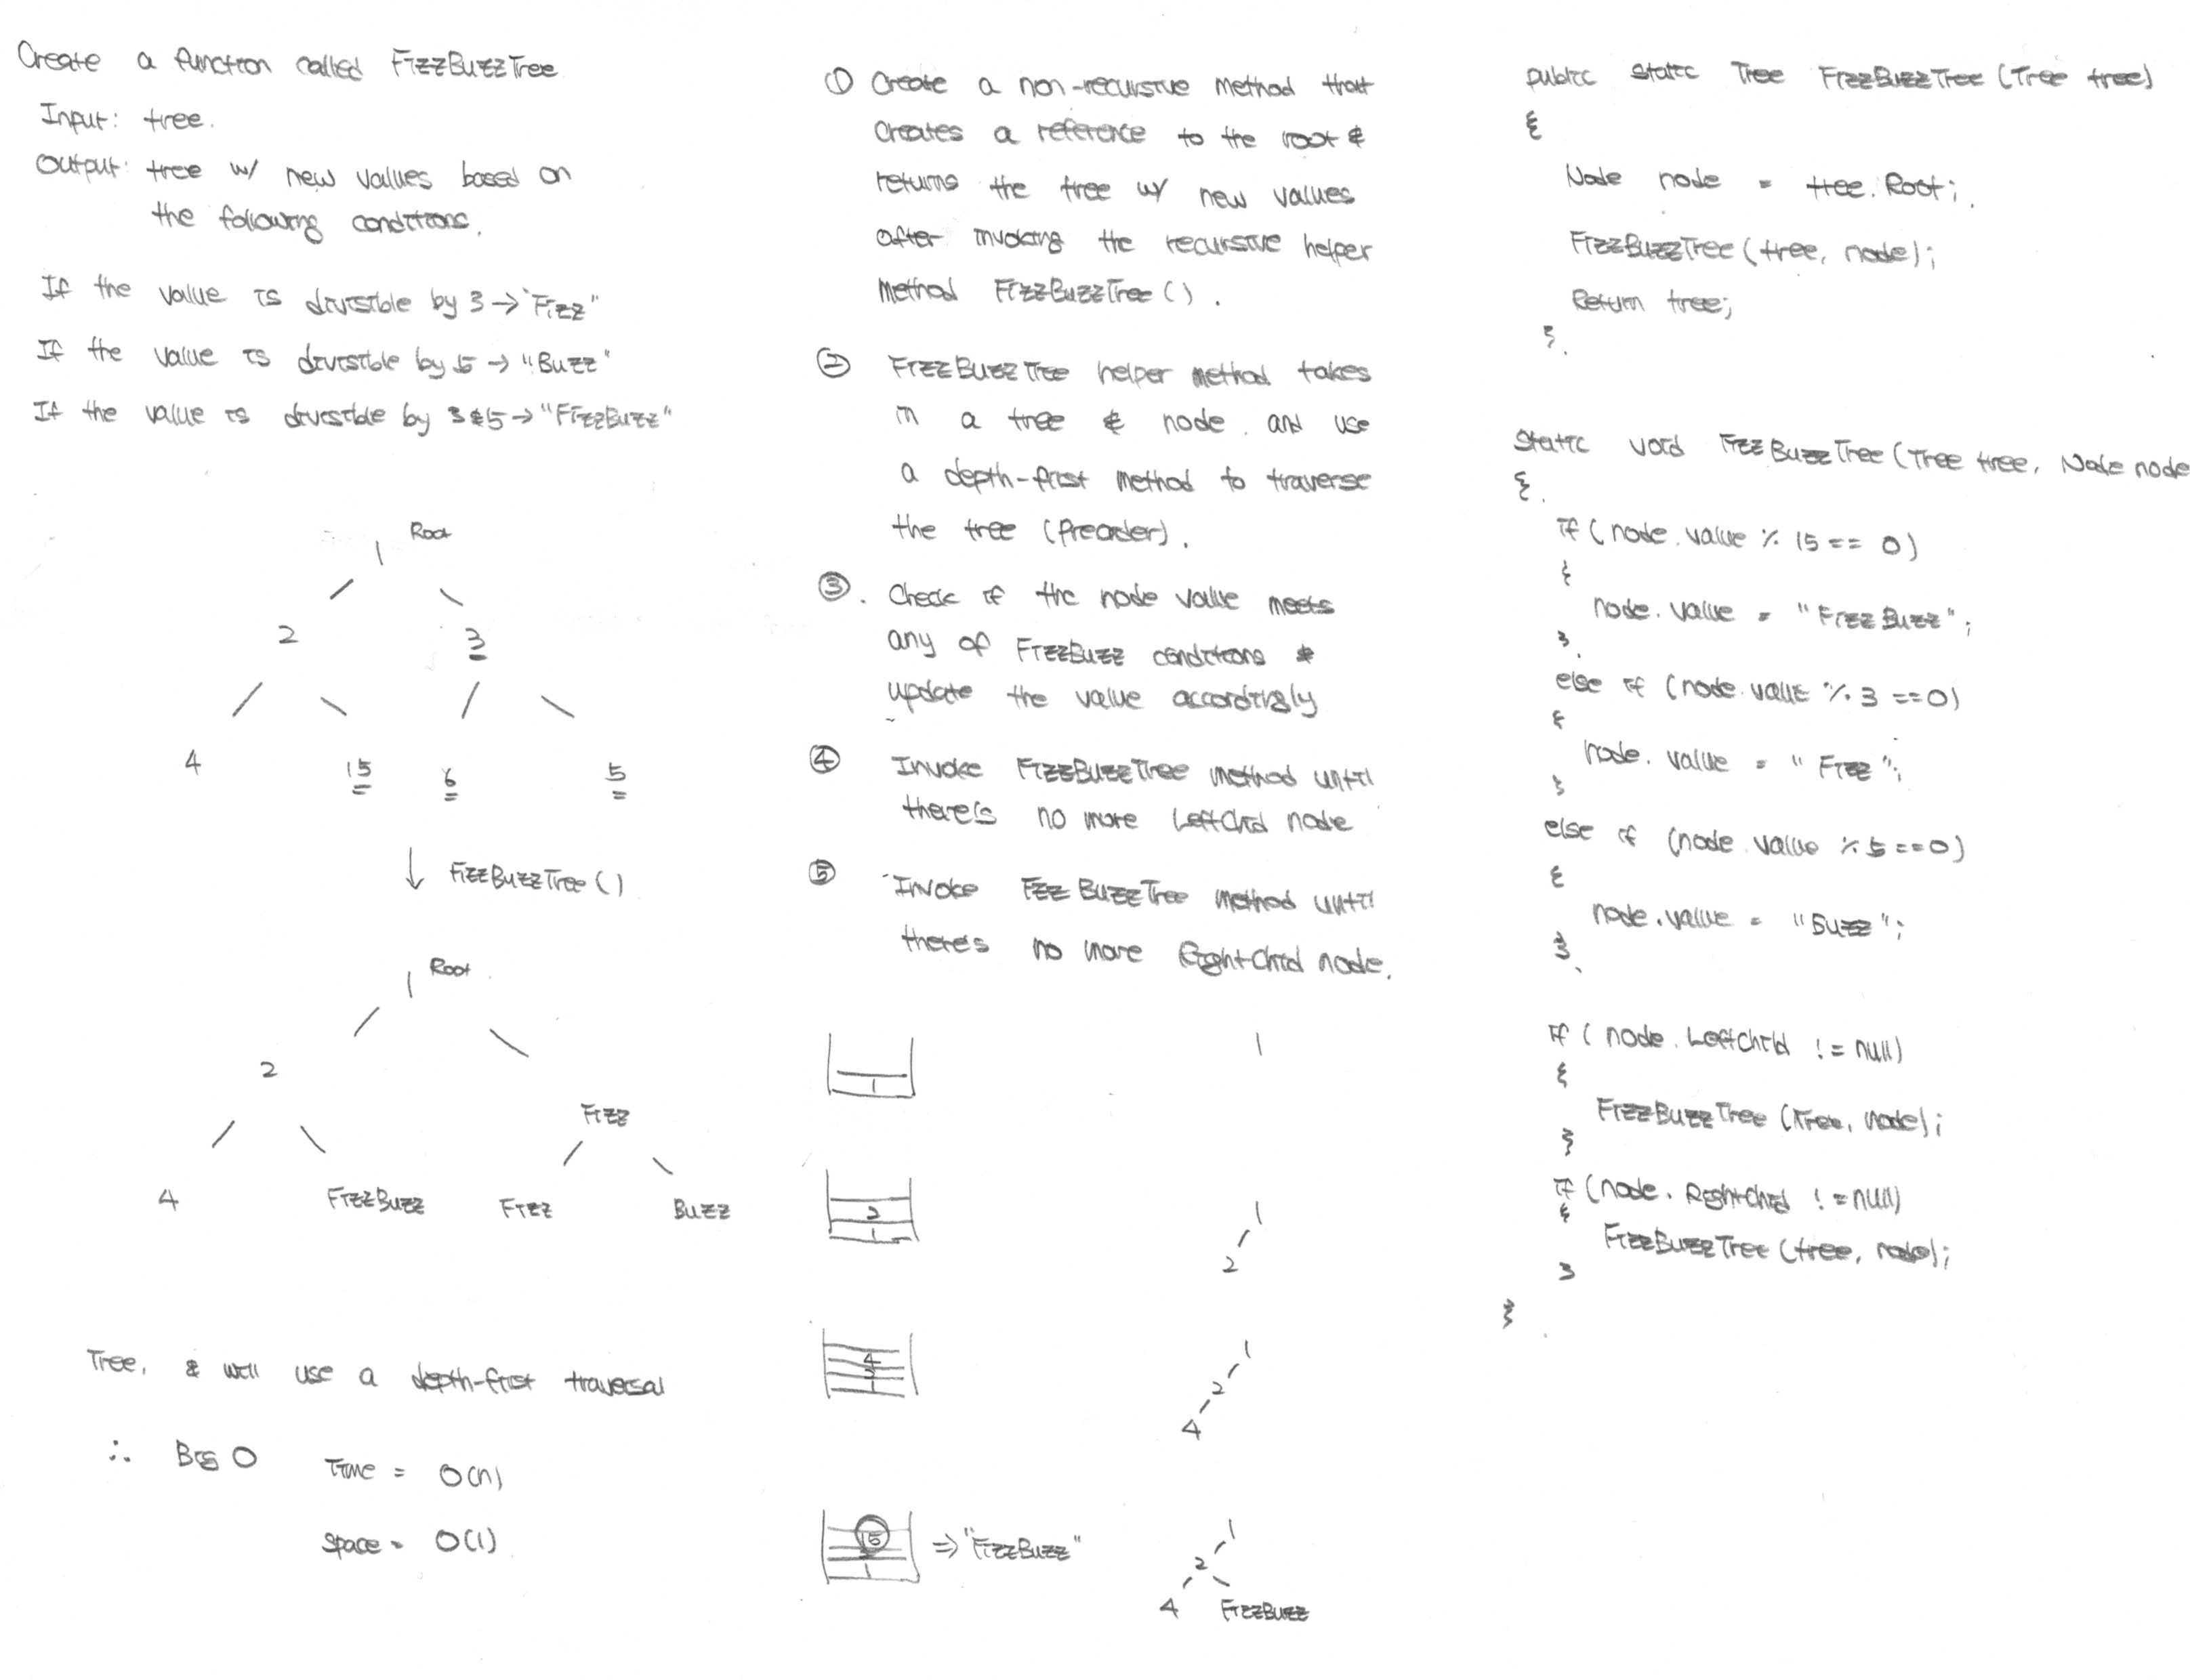 Create a function called FizzBuzzTree
Input: tree.
Output: tree w/ new values based on
the following conditions.
If the value is divisible by 3 → "Fizz"
If the value is divisible by 5 → "Buzz"
If the value is divisible by 3 & 5 → "FizzBuzz"
Root
1
2 3
4 15 6 5
↓ FizzBuzzTree ( )
Root
1
2
Fizz
4 FizzBuzz Fizz Buzz
Tree, & will use a depth-first traversal
∴ Big O Time = O(n)
Space = O(1)
① Create a non-recursive method that
creates a reference to the root &
returns the tree w/ new values
after invoking the recursive helper
method FizzBuzzTree ( ) .
② FizzBuzzTree helper method takes
in a tree & node . and use
a depth-first method to traverse
the tree (Preorder) .
③. Check if the node value meets
any of FizzBuzz conditions &
update the value accordingly
④ Invoke FizzBuzzTree method until
there's no more LeftChild node
⑤ Invoke FizzBuzzTree method until
there's no more RightChild node.
1 1
2 1
1 2
4 1
2 2
1 4
15 ⇒ "FizzBuzz" 1
2 2
1 4 FizzBuzz
public static Tree FizzBuzzTree (Tree tree)
{
Node node = tree. Root;
FizzBuzzTree (tree, node);
Return tree;
}
static void FizzBuzzTree (Tree tree, Node node
{
if ( node. value % 15 == 0)
{
node. value = "FizzBuzz";
}
else if (node. value % 3 == 0)
{
node. value = "Fizz";
}
else if (node. value % 5 == 0)
{
node. value = "Buzz";
}
if ( node. LeftChild != null)
{
FizzBuzzTree (Tree, node);
}
if (node. RightChild != null)
{
FizzBuzzTree (tree, node);
}
}